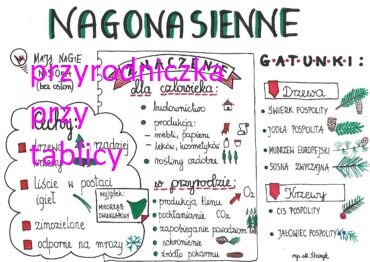 NAGONASIENNE
MAJĄ NAGIE
(bez osłon)
przyrodniczka
przy
tablicy
Cechy:
drzewa rzadziej
liście w postaci
igieł
zimozielone
odporne na mrozy
wyjątek:
ZNACZENIE
dla człowieka:
budownictwo
produkcja:
- mebli, papieru
- leków, kosmetyków
rośliny ozdobne
w przyrodzie:
produkcja tlenu
O2
pochłanianie CO2
zapobieganie powodziom
schronienie
źródło pokarmu
GATUNKI:
Drzewa
ŚWIERK POSPOLITY
JODŁA POSPOLITA
MODRZEW EUROPEJSKI
SOSNA ZWYCZAJNA
Krzewy
CIS POSPOLITY
JAŁOWIEC POSPOLITY